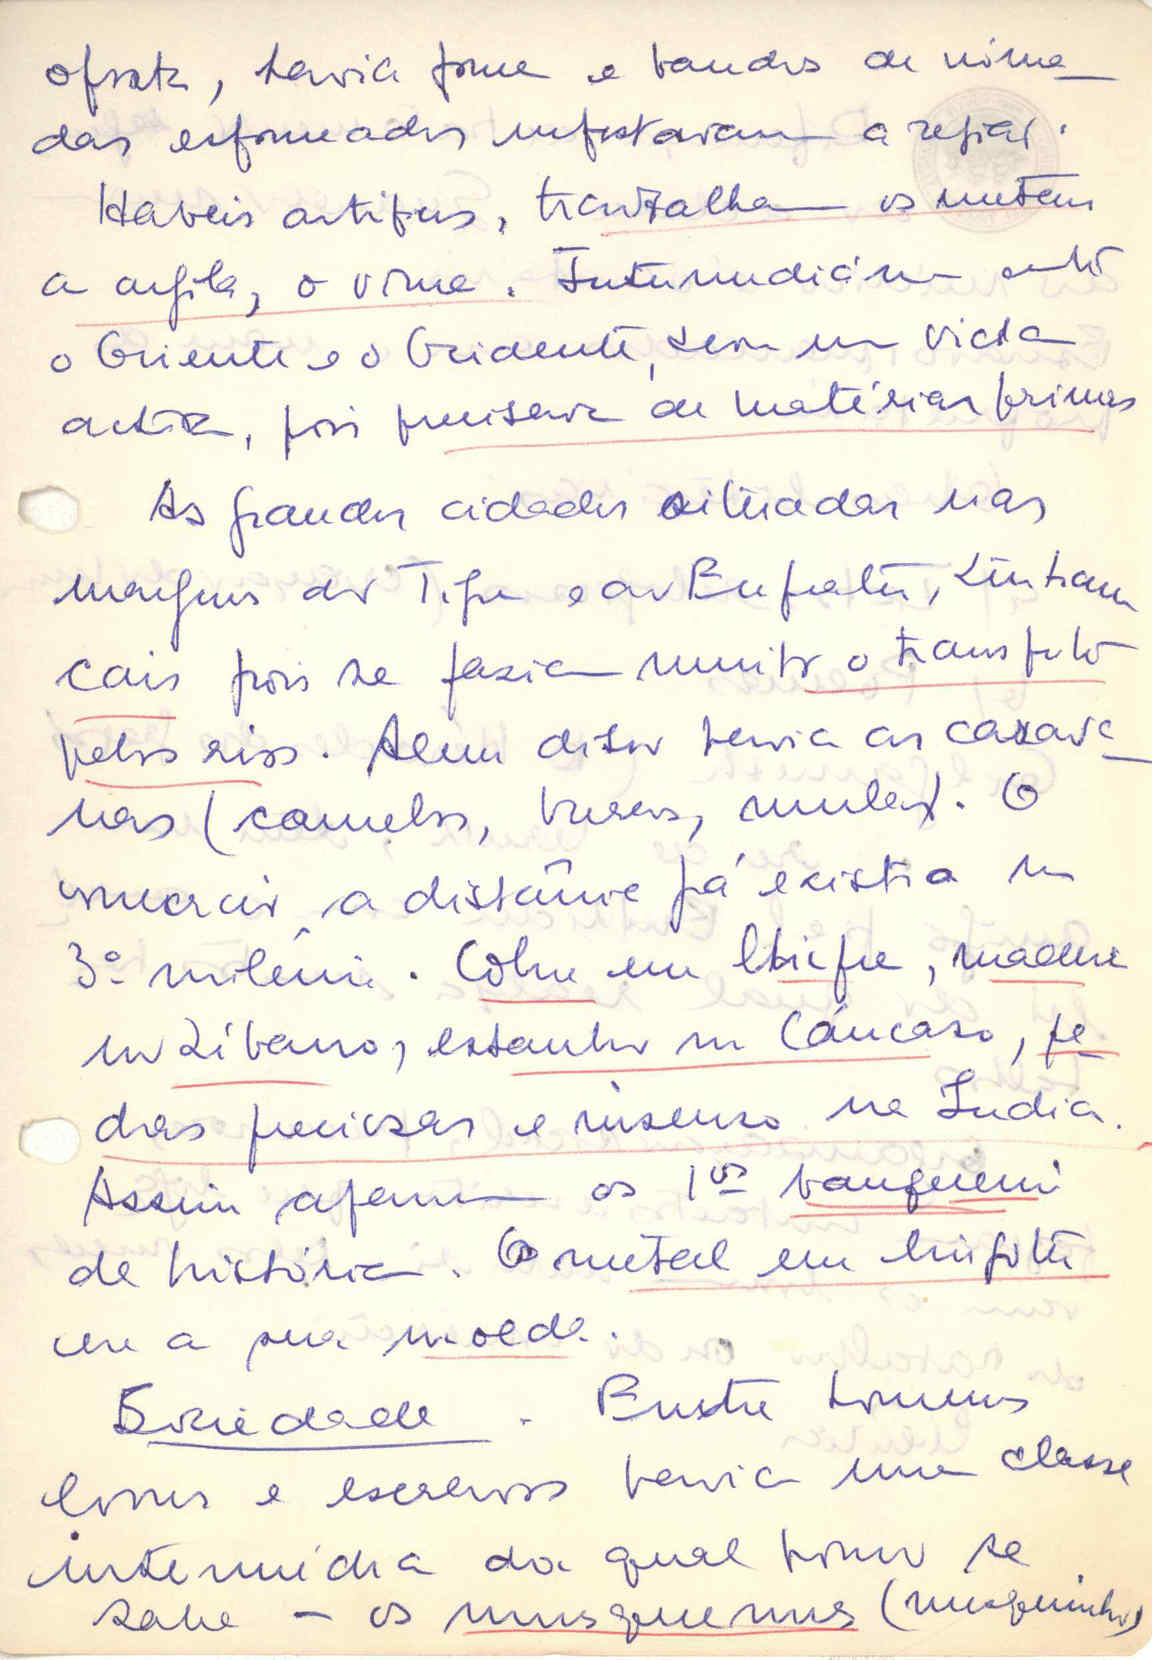 havia fome e bandos de nóma-
das esfomeados infestavam a região.
Habeis artifices, trabalham os metais
a argila, o vime. Intermediário entre
o Oriente e o Ocidente, tem um vida
activa, pois precisava de matérias primas
As grandes cidades situadas nas
margens do Tigre e do Eufrates, tinham
cais pois se fazia muito o transporte
pelos rios. Alem disso havia as carava-
nas (camelos, burros, mulas). O
comercio a distância já existia no
3º milénio. Cobre em Chipre, madeira
no Líbano, estanho no Cáucaso, pe-
dras preciosas e incenso na India.
Assim aparecem os 1os banqueiros
da história. O metal em lingotes
era a sua moeda.
Sociedade. Entre homens
livres e escravos havia uma classe
intermédia da qual pouco se
sabe - os musquenus (mesquinhos)